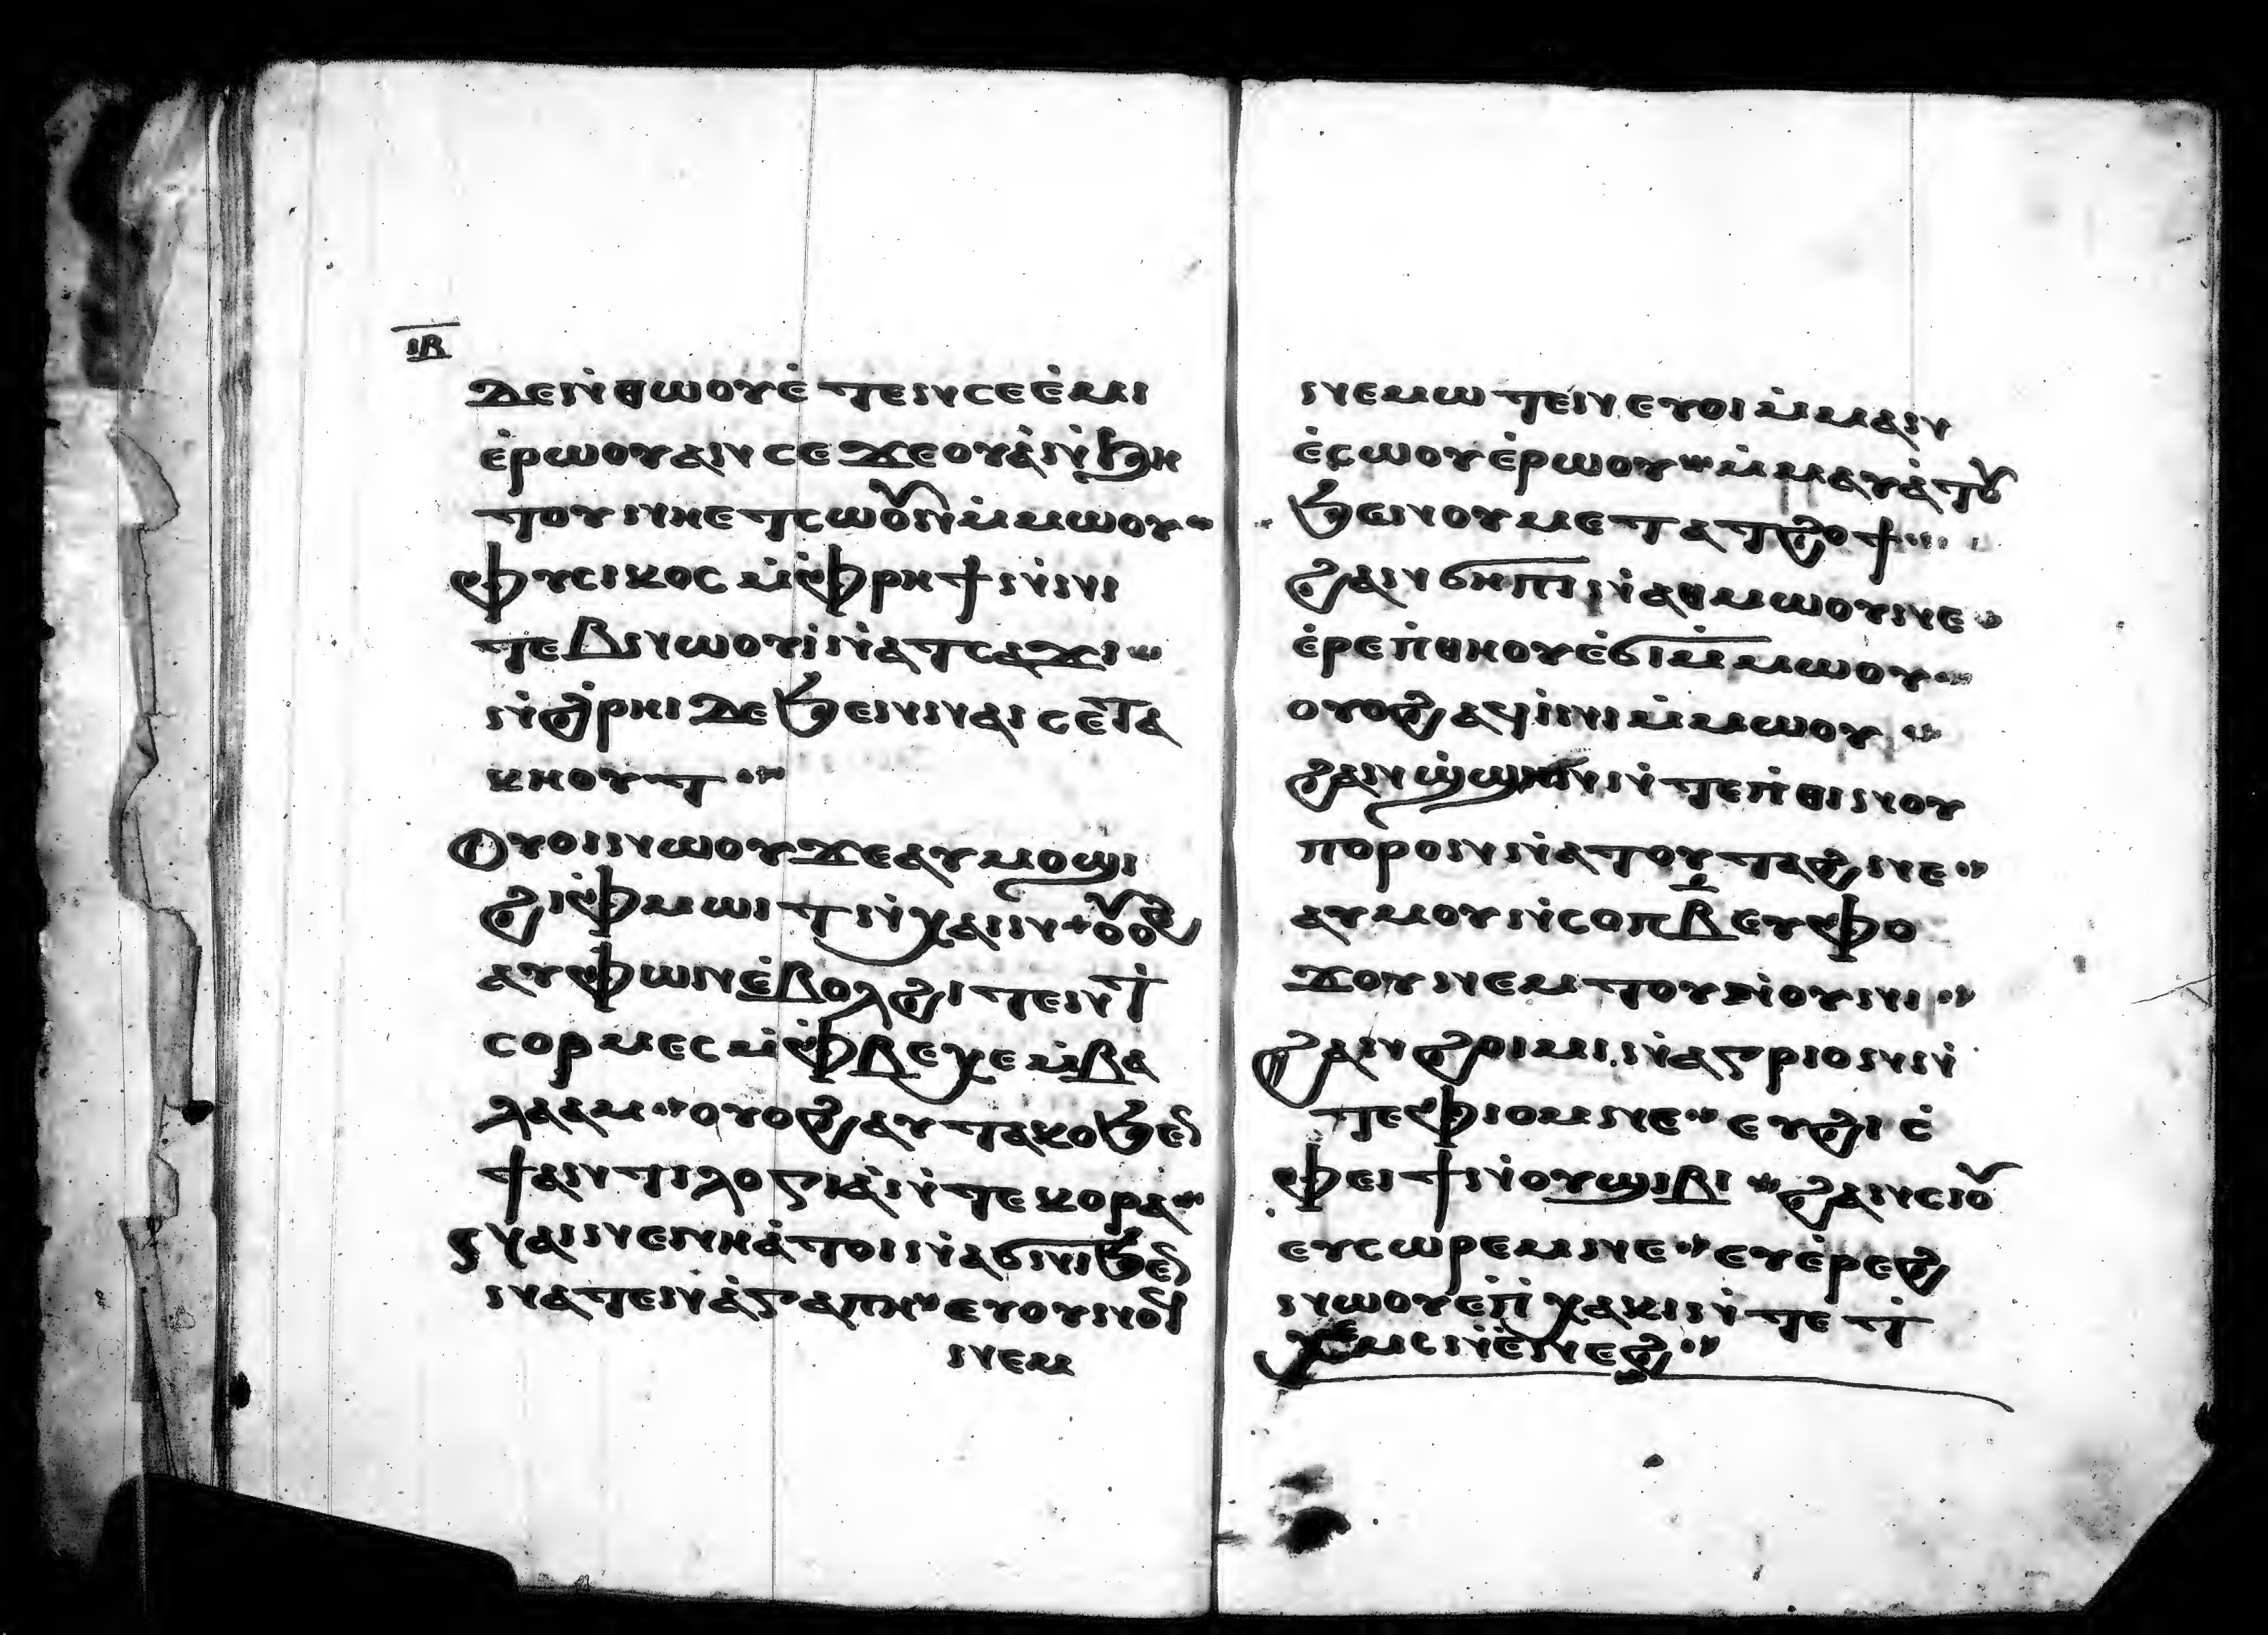 ⲓⲃ
ⲇⲉ ⲛ̇ⲑⲱⲟⲩ ⲉ̇ⲧⲉⲛⲥⲉⲉ̇ⲙⲓ
ⲉ̇ⲣⲱⲟⲩ ⲁⲛ ⲥⲉϫⲉⲟⲩⲁ̇ ⲛ̇ϧⲏ
ⲧⲟⲩ ⲛⲏ ⲉⲧⲥⲱⲟⲩⲛ ⲙ̇ⲙⲱⲟⲩ
ⲫⲩⲥⲓⲕⲟⲥ ⲙ̇ⲫⲣⲏϯ ⲛ̇ⲛⲓ
ⲧⲉⲃⲛⲱⲟⲩⲓ̇ ⲛ̇ⲁⲧⲥⲁϫⲓ
ⲛ̇ϩ̇ⲣⲏⲓ ⲇⲉ ϧⲉⲛ ⲛⲁⲓ ⲥⲉⲧⲁ
ⲕⲏⲟⲩⲧ
ⲟⲩⲟⲓ ⲛⲱⲟⲩ ϫⲉ ⲁⲩⲙⲟϣⲓ
ϩⲓ ⲫⲙⲱⲓⲧ ⲛ̇ⲭⲁⲓⲛ ⲟⲩⲟϩ
ⲁⲩⲫⲱⲛ ⲉ̇ⲃⲟⲗ ϩⲓⲧⲉⲛ ⲧ̇
ⲥⲟⲣⲙⲉⲥ ⲙ̇ⲫⲃⲉⲭⲉ ⲙ̇ⲃⲁ
ⲗⲁⲁⲙ ⲟⲩⲟϩ ⲁⲩⲧⲁⲕⲟ ϧⲉⲛ
ϯⲁⲛⲧⲓⲗⲟⲅⲓⲁ̇ ⲛ̇ⲧⲉ ⲕⲟⲣⲁ
ⲛⲁⲓ ⲛⲉ ⲛⲏ ⲁ̇ⲧⲟⲓ ⲛ̇ⲁϭⲛⲓ ϧⲉⲛ
ⲛⲁⲧⲉⲛⲁ̇ⲅⲁⲡⲏ ⲉⲩⲟⲩⲛⲟϥ
ⲛⲉⲙ
ⲛⲉⲙⲱⲧⲉⲛ ⲉⲩⲟⲓ ⲙ̇ⲙⲁⲛ
ⲉ̇ⲥⲱⲟⲩ ⲉ̇ⲣⲱⲟⲩ ⲙ̇ⲙⲁⲩⲁ̇ⲧⲟⲩ
ϧⲉⲛ ⲟⲩⲙⲉⲧⲁⲧϩⲟϯ
ϩⲁⲛϭⲏⲡⲓ ⲛ̇ⲁⲑⲙⲱⲟⲩ ⲛⲉ
ⲉ̇ⲣⲉ ⲡ̇ⲑⲏⲟⲩ ⲉ̇ϭⲓ ⲙ̇ⲙⲱⲟⲩ
ⲟⲩⲟϩ ⲁϥⲓ̇ⲛⲓ ⲙ̇ⲙⲱⲟⲩ
ϩⲁⲛϣ̇ϣⲏⲛ ⲛ̇ⲧⲉ ⲡ̇ⲑⲓⲛⲟⲩ
ⲡⲟⲣⲟⲛ ⲛ̇ⲁⲧⲟⲩⲧⲁϩ ⲛⲉ
ⲁⲩⲙⲟⲩ ⲛ̇ⲥⲟⲡ ⲃ̄ ⲉⲩⲫⲟ
ϫⲟⲩ ⲛⲉⲙ ⲧⲟⲩⲛ̇ⲟⲩⲛⲓ
ϩⲁⲛϩⲱⲓⲙⲓ ⲛ̇ⲁⲅⲣⲓⲟⲛ ⲛ̇
ⲧⲉ ⲫⲓⲟⲙ ⲛⲉ ⲉⲩϩⲓ ⲥ̇
ⲫⲉⲓϯ ⲛ̇ⲟⲩϣⲓⲃⲓ ϩⲁⲛⲥⲓⲟⲩ
ⲉⲩⲥⲱⲣⲉⲙ ⲛⲉ ⲉⲩⲉ̇ⲣⲉϩ
ⲛⲱⲟⲩ ⲉⲡ̇ⲭⲁⲕⲓ ⲛ̇ⲧⲉ ⲡ̇
ⲭⲉⲙⲥ ⲛ̇ⲉ̇ⲛⲉϩ